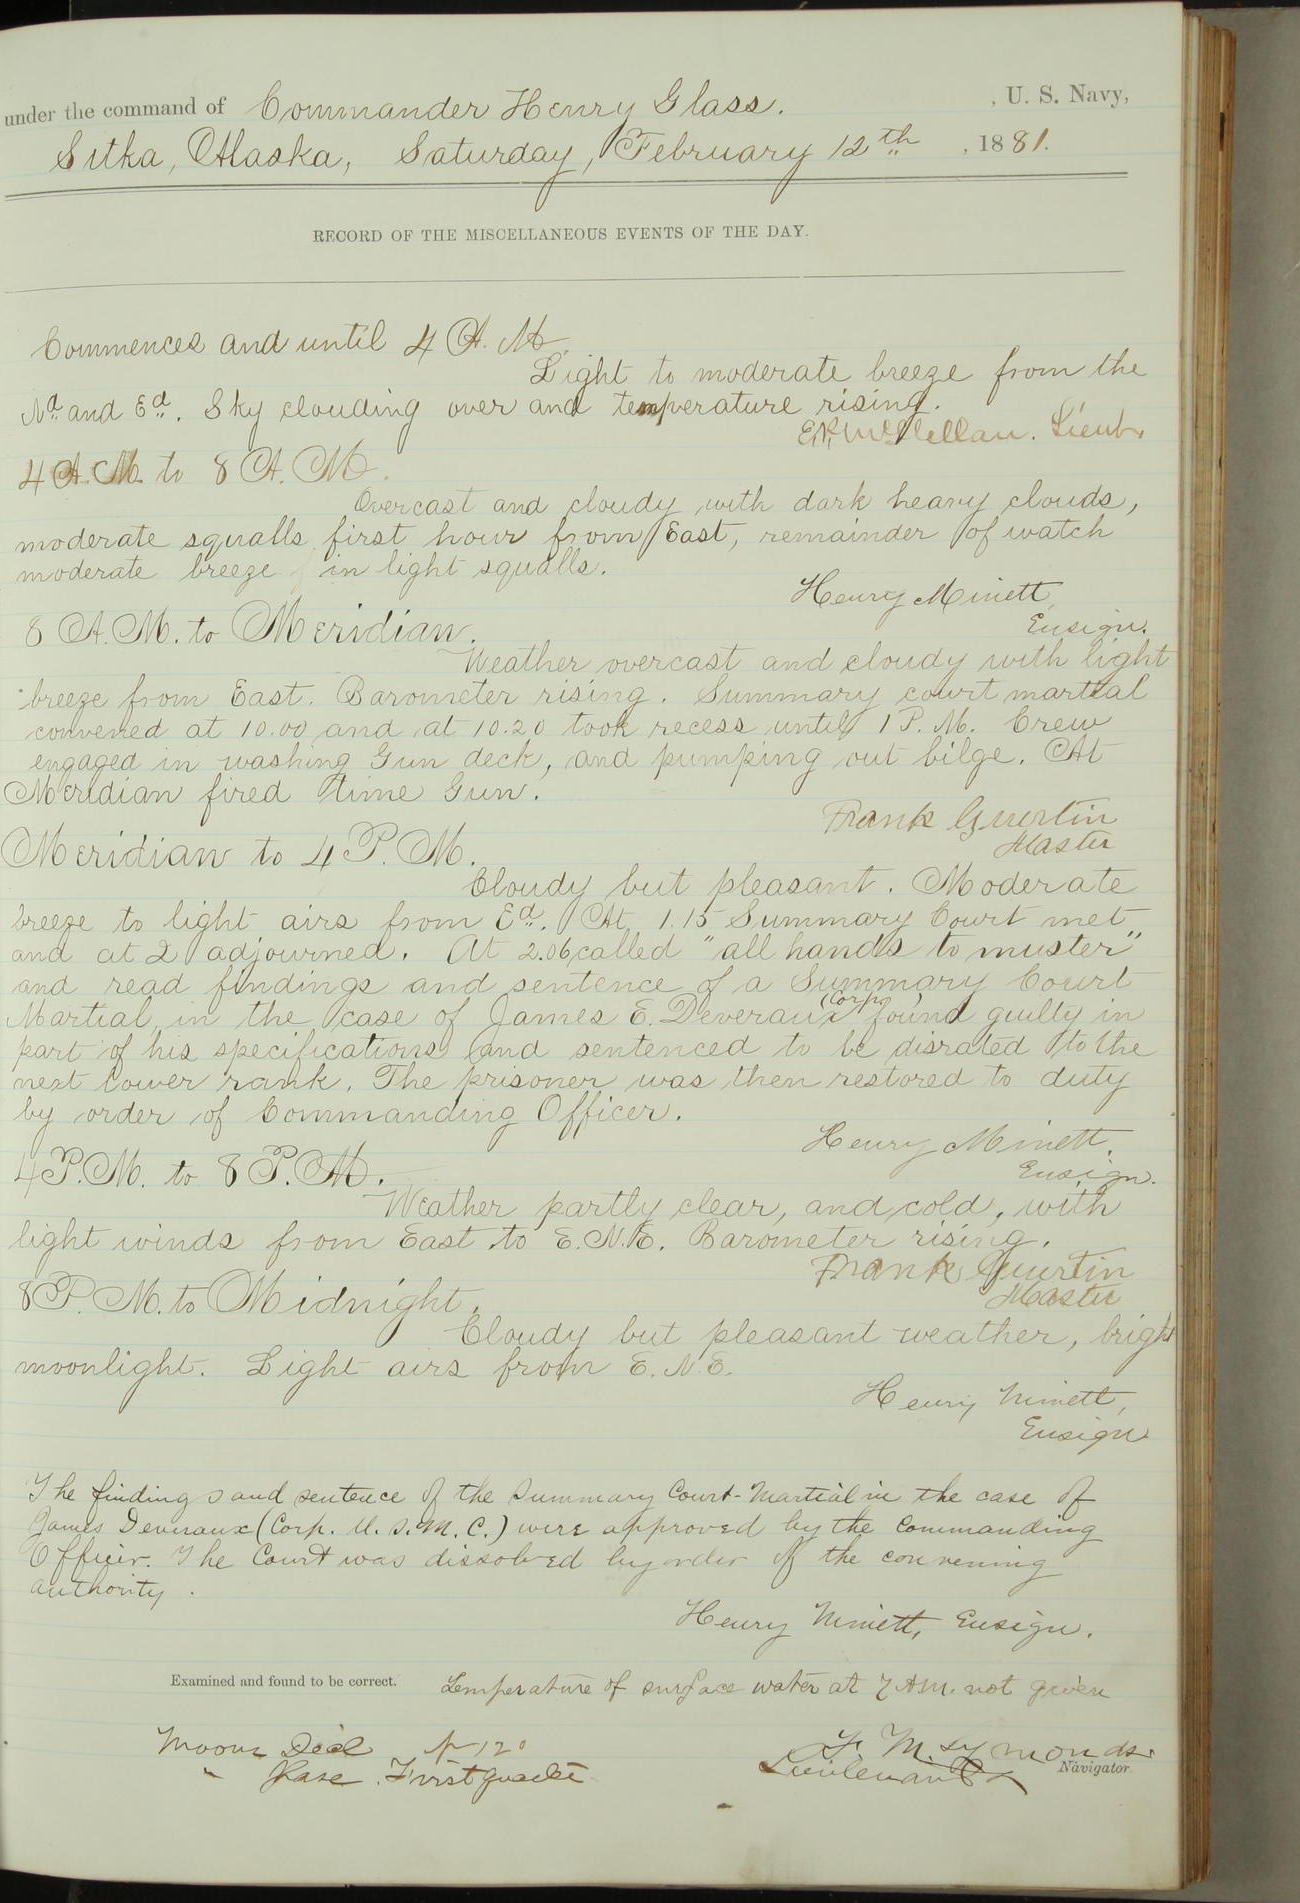 under the command of Commander Henry Glass. , U. S. Navy,
Sitka, Alaska, Saturday, February 12th , 1881.
RECORD OF THE MISCELLANEOUS EVENTS OF THE DAY.
Commences and until 4 A. M.
Light to moderate breeze from the
Nd. and Ed. Sky clouding over and temperature rising.
McClellan. Lieut.
4 A. M. to 8 A. M.
Overcast and cloudy with dark heavy clouds,
moderate squalls first hour from East, remainder of watch
moderate breeze in light squalls.
Henry Minett,
Ensign.
8 A. M. to Meridian.
Weather overcast and cloudy with light
breeze from East. Barometer rising. Summary court martial
convened at 10.00 and at 10.20 took recess until 1 P. M. Crew
engaged in washing Gun deck, and pumping out bilge. At
Meridian fired time Gun.
Frank Guertin
Master
Meridian to 4 P. M.
Cloudy but pleasant. Moderate
breeze to light airs from Ed. At 1.15 Summary Court met
and at 2 adjourned. At 2.06 called "all hands to muster"
and read findings and sentence of a Summary Court
Martial in the case of James E. Deveraux (Corp.) found guilty in
part of his specifications and sentenced to be disrated to the
next lower rank. The prisoner was then restored to duty
by order of Commanding Officer.
Henry Minett.
Ensign.
4 P.M. to 8 P.M.
Weather partly clear, and cold, with
light winds from East to E.N.E. Barometer rising.
Frank Guertin
Master
8 P. M. to Midnight.
Cloudy but pleasant weather, bright
moonlight. Light airs from E. N. E.
Henry Minett,
Ensign
The findings and sentence of the Summary Court-Martial in the case of
James Deveraux (Corp. U. S. M. C.) were approved by the Commanding
Officer. The Court was dissolved by order of the convening
authority.
Henry Minett, Ensign.
Examined and found to be correct. Temperature of surface water at 7 AM. not given
Moons Decl N 12°
" Phase. First quarter
F. M. Symonds.
Lieutenant Navigator.